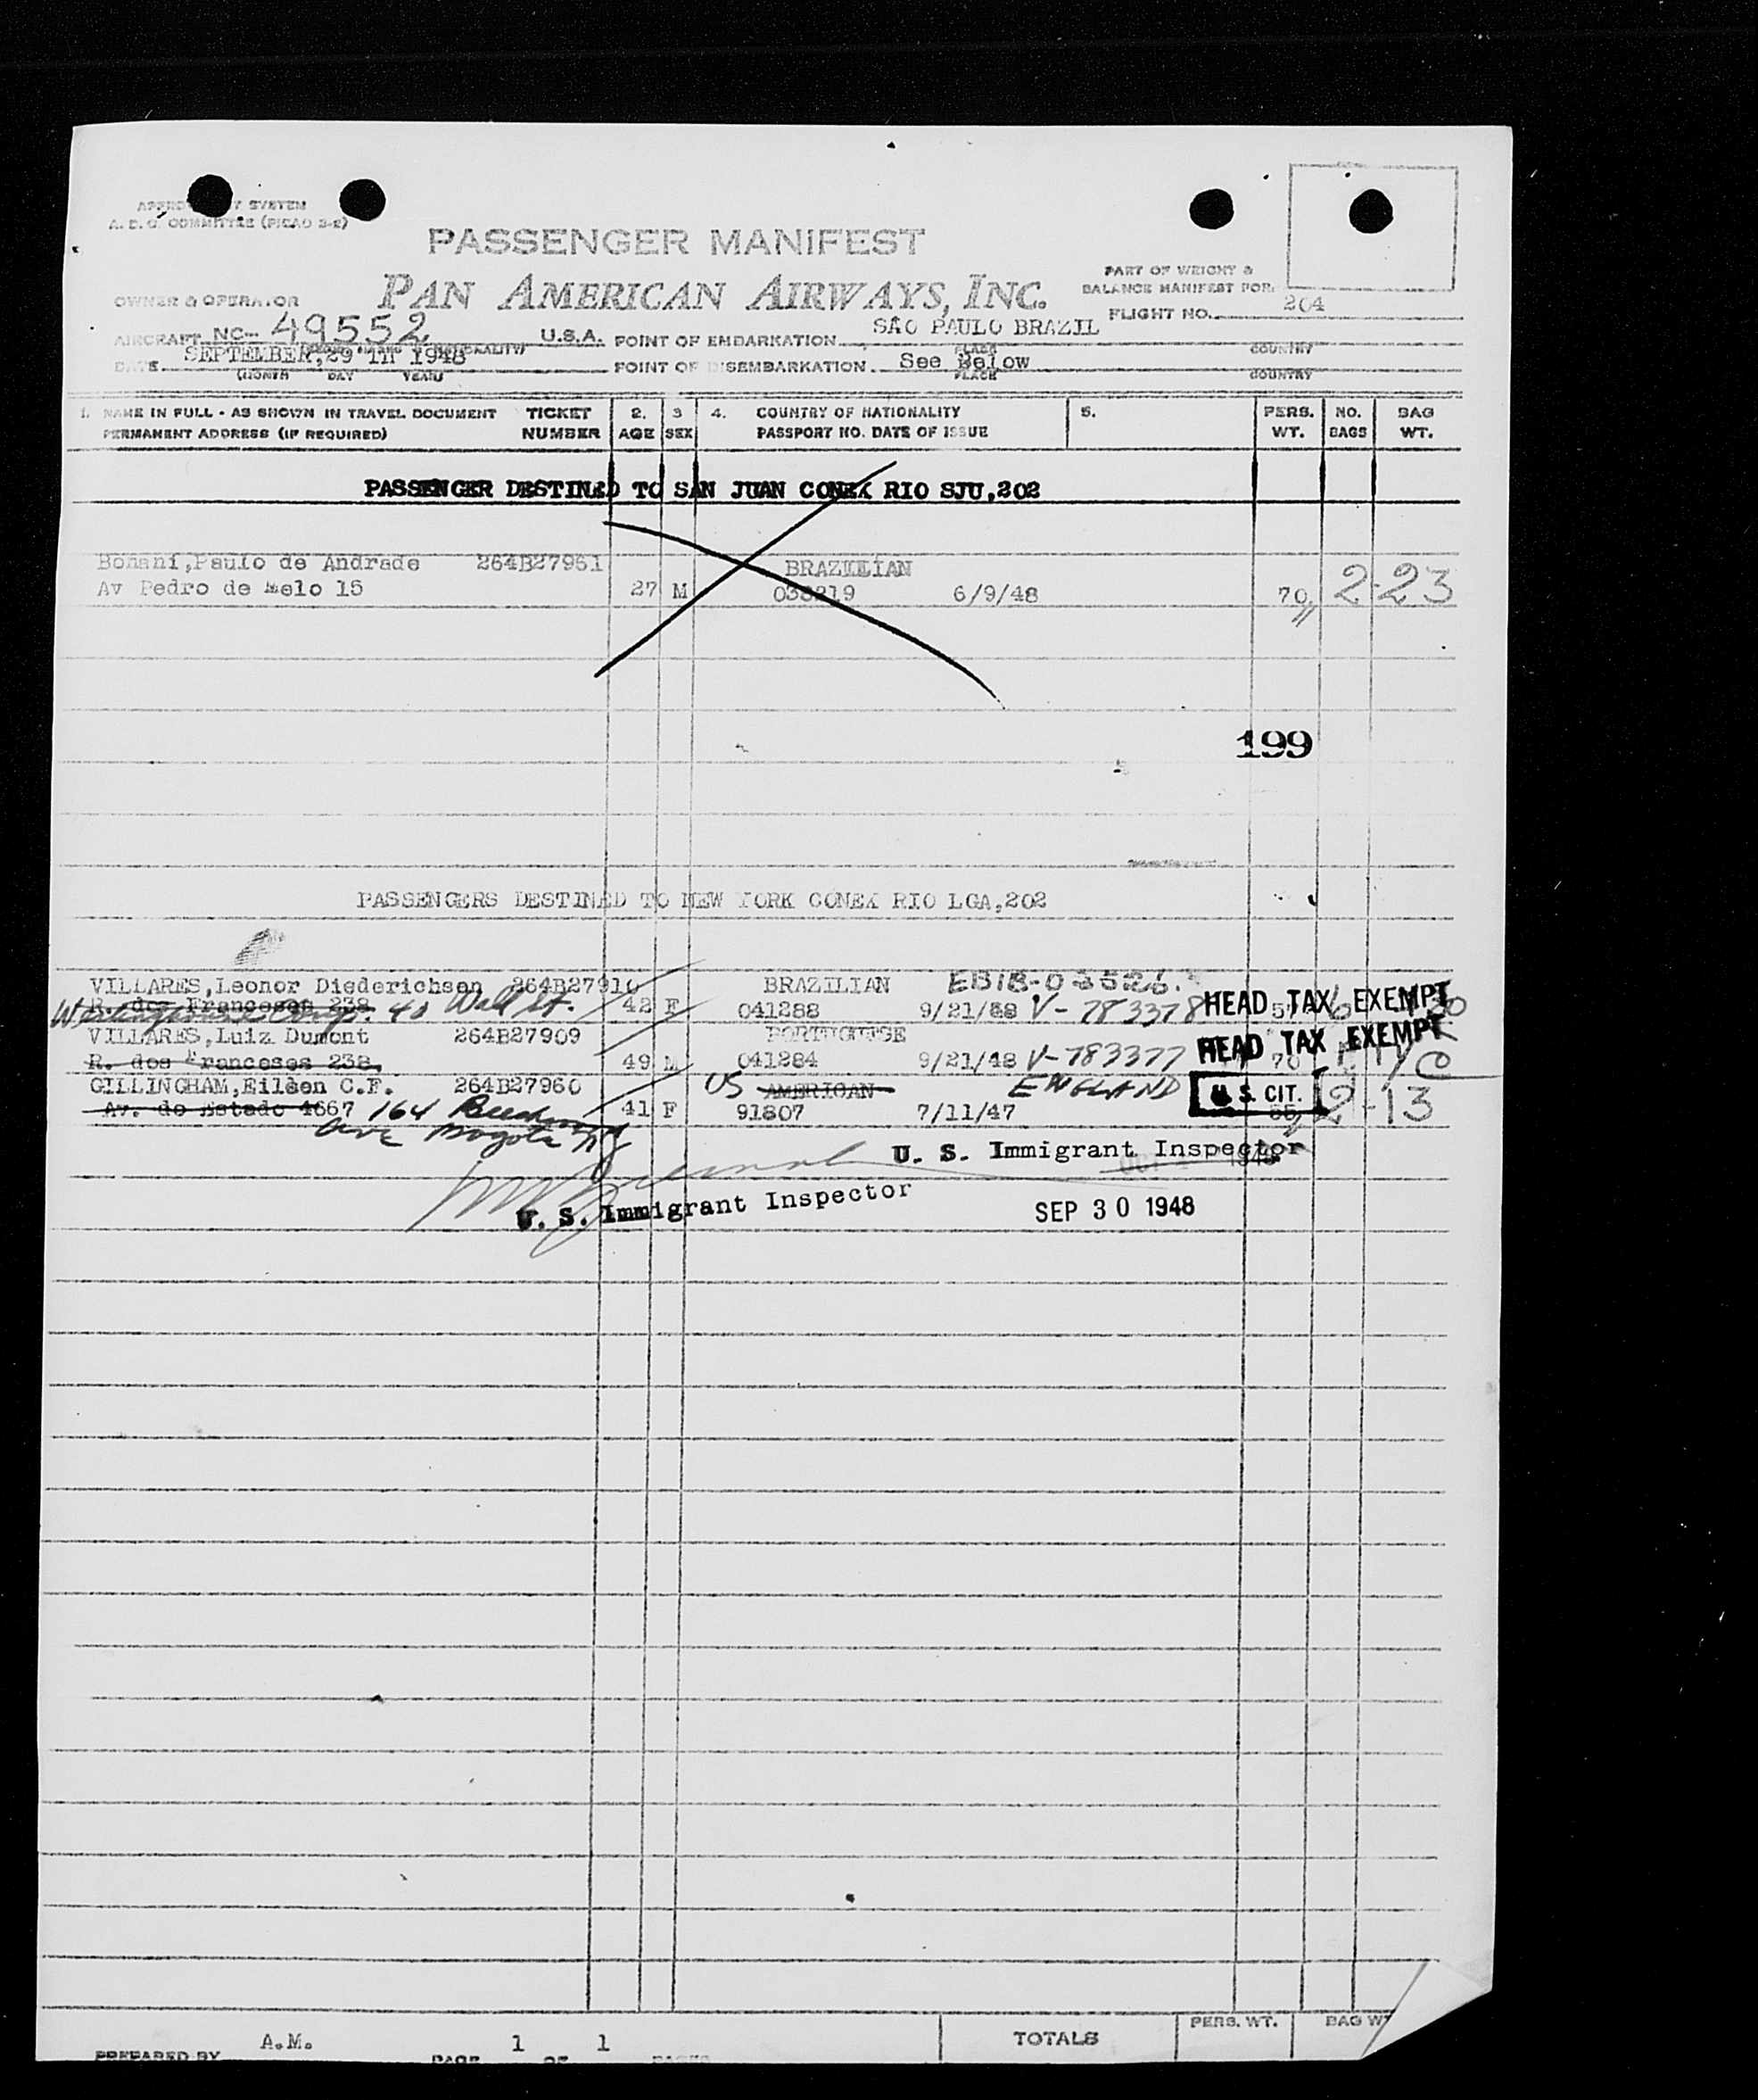 A. D. C. COMMITTEE (PICAO 3-2)
PASSENGER MANIFEST
PAN AMERICAN AIRWAYS, INC.
PART OF WEIGHT &
BALANCE MANIFEST FOR:
FLIGHT NO. 204
OWNER & OPERATOR
AIRCRAFT NC- 49552 U.S.A. POINT OF EMBARKATION SÃO PAULO BRAZIL
PLACE COUNTRY
DATE SEPTEMBER, 29 TH 1948 POINT OF DISEMBARKATION See Below
(MONTH DAY YEAR) PLACE COUNTRY
1. NAME IN FULL - AS SHOWN IN TRAVEL DOCUMENT TICKET 2. 3 4. COUNTRY OF NATIONALITY 5. PERS. NO. BAG
PERMANENT ADDRESS (IF REQUIRED) NUMBER AGE SEX PASSPORT NO. DATE OF ISSUE WT. BAGS WT.
PASSENGER DESTINED TO SAN JUAN CONEX RIO SJU,202
Bonani,Paulo de Andrade 264B27961 BRAZILIAN
Av Pedro de Melo 15 27 M 6/9/48 70 2-23
199
PASSENGERS DESTINED TO NEW YORK CONEX RIO LGA,202
VILLARES,Leonor Diederichsen 264B27910 BRAZILIAN
R. dos Franceses 238 40 Wall St. 42 F 041288 9/21/48 V-783378 HEAD TAX EXEMPT
VILLARES,Luiz Dumont 264B27909 PORTUGUESE
R. dos Franceses 238. 49 M 041284 9/21/48 V-783377 HEAD TAX EXEMPT 70
GILLINGHAM,Eileen C.F. 264B27960 US AMERICAN ENGLAND U. S. CIT.
Av. do Estado 4667 164 41 F 91807 7/11/47 55 2-13
Ave Bogota NJ
U. S. Immigrant Inspector
U. S. Immigrant Inspector
SEP 30 1948
PREPARED BY A.M. PAGE 1 OF 1 PAGES TOTALS PERS. WT. BAG WT